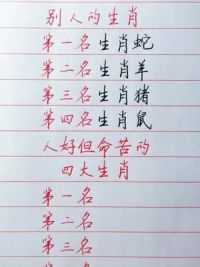 别人的生肖
第一名生肖蛇
第二名生肖羊
第三名生肖猪
第四名生肖鼠
人好但命苦的
四大生肖
第一名
第二名
第三名